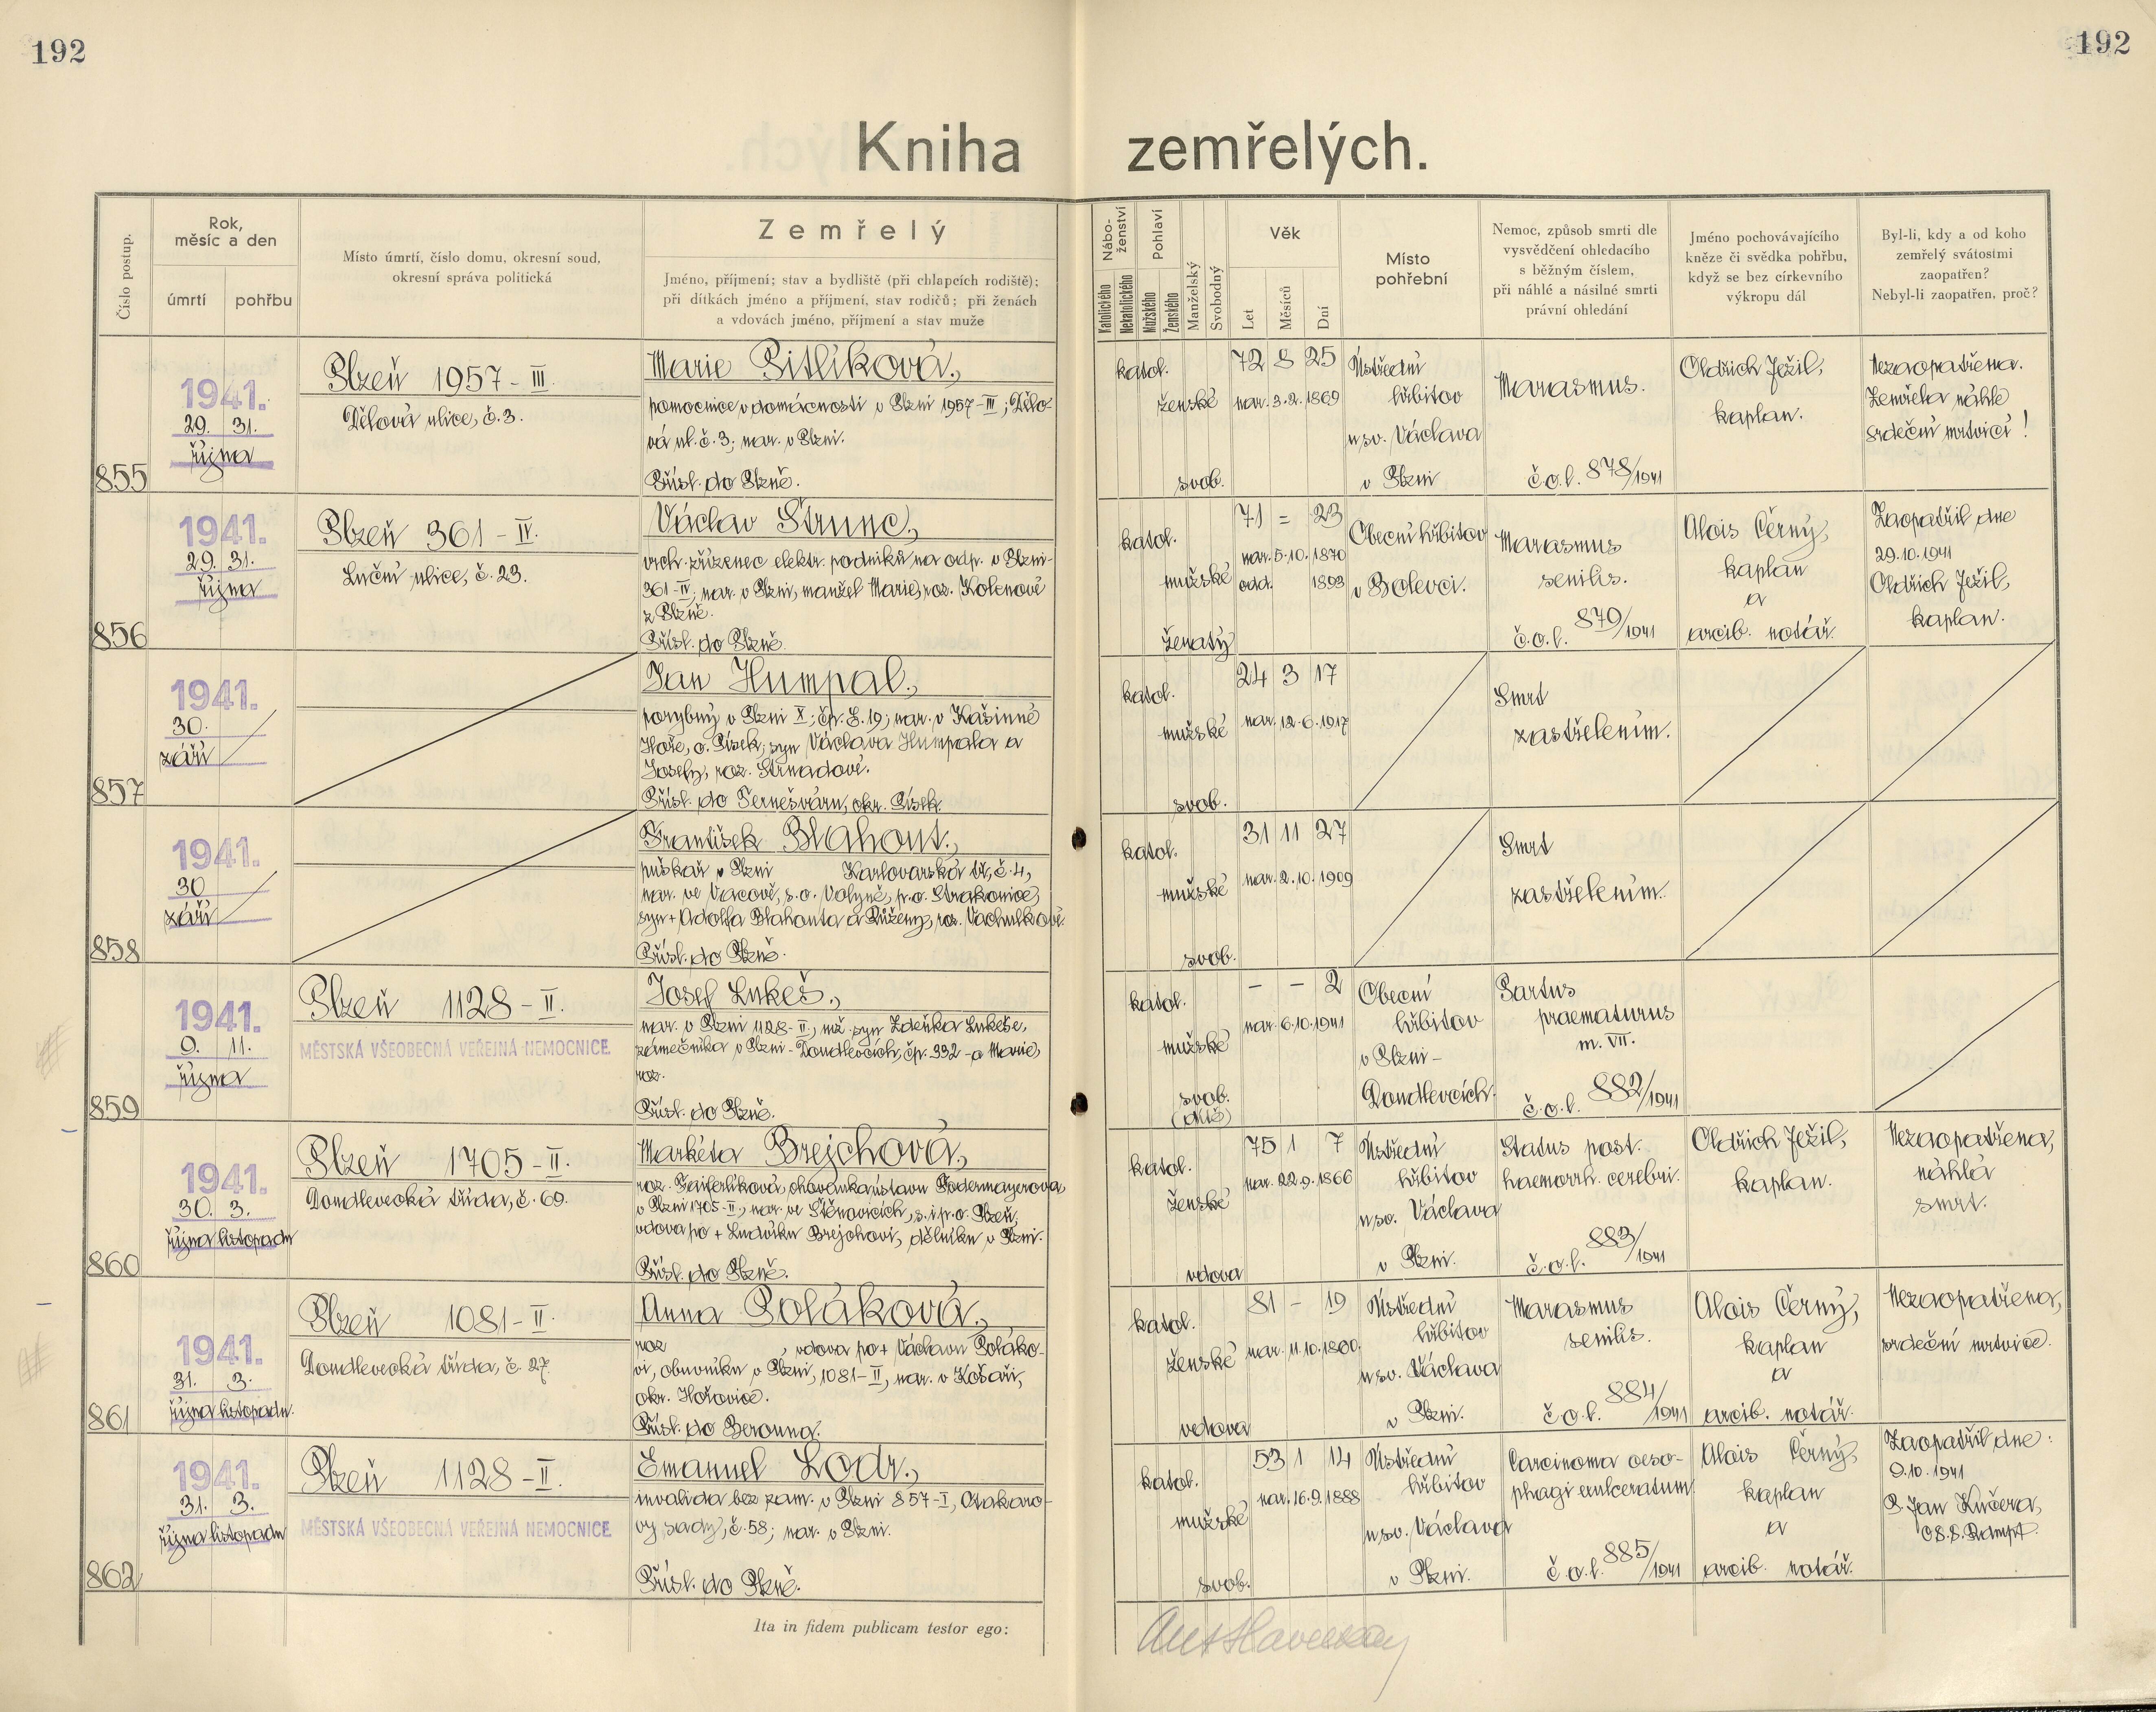 192
192
Kniha zemřelých.
Číslo postup.
Rok,
měsíc a den
úmrtí
pohřbu
Místo úmrtí, číslo domu, okresní soud,
okresní správa politická
Zemřelý
Jméno, příjmení; stav a bydliště (při chlapcích rodiště);
při dítkách jméno a příjmení, stav rodičů; při ženách
a vdovách jméno, příjmení a stav muže
Nábo-
ženství
Katolického
Nekatolického
Pohlaví
Mužského
Ženského
Manželský
Svobodný
Věk
Let
Měsíců
Dní
Místo
pohřební
Nemoc, způsob smrti dle
vysvědčení ohledacího
s běžným číslem,
při náhlé a násilné smrti
právní ohledání
Jméno pochovávajícího
kněze či svědka pohřbu,
když se bez církevního
výkropu dál
Byl-li, kdy a od koho
zemřelý svátostmi
zaopatřen?
Nebyl-li zaopatřen, proč?
855
1941.
29. 31.
října
Plzeň 1957-III.
Dělová ulice, č. 3.
Marie Pitlíková,
pomocnice v domácnosti v Plzni 1957-III; Dělo-
vá ul. č. 3; nar. v Plzni.
Přísl. do Plzně.
katol.
ženské
svob.
72 8 25
nar. 3.2.1869
Ústřední
hřbitov
u sv. Václava
v Plzni
Marasmus.
č.o.l. 878/1941
Oldřich Ježil,
kaplan.
Nezaopatřena.
Zemřela náhle
srdeční mrtvicí!
856
1941.
29. 31.
října
Plzeň 361-IV.
Luční ulice, č. 23.
Václav Strunc,
vrch. zřízenec elektr. podniků na odp. v Plzni-
361-IV; nar. v Plzni, manžel Marie, roz. Kolenové
z Plzně.
Přísl. do Plzně.
katol.
mužské
ženatý
71 = 23
nar. 5.10.1870
odd. 1893
Obecní hřbitov
v Bolevci.
Marasmus
senilis.
č.o.l. 879/1941
Alois Černý,
kaplan
a
arcib. notář.
Zaopatřil dne
29.10.1941
Oldřich Ježil,
kaplan.
857
1941.
30.
září
Jan Humpal,
porybný v Plzni X; čp. 8.19; nar. v Kašinné
Hoře, o. Písek; syn Václava Humpala a
Josefy, roz. Strnadové.
Přísl. do Temešváru, okr. Písek.
katol.
mužské
svob.
24 3 17
nar. 12.6.1917
Smrt
zastřelením.
858
1941.
30
září
František Blahout,
puškař v Plzni Karlovarská tř., č. 4,
nar. ve Vacově, s.o. Volyně, p.o. Strakonice,
syn + Adolfa Blahouta a Růženy, roz. Vachulkové.
Přísl. do Plzně.
katol.
mužské
svob.
31 11 27
nar. 2.10.1909
Smrt
zastřelením.
859
1941.
9. 11.
října
Plzeň 1128-II.
MĚSTSKÁ VŠEOBECNÁ VEŘEJNÁ NEMOCNICE
Josef Lukeš,
nar. v Plzni 1128-II, mž. syn Zdeňka Lukeše,
zámečníka v Plzni-Doudlevcích, čp. 392 - a Marie,
roz.
Přísl. do Plzně.
katol.
mužské
svob.
(dítě)
- - 2
nar. 6.10.1941
Obecní
hřbitov
v Plzni-
Doudlevcích.
Partus
praematurus
m. VII.
č.o.l. 882/1941
860
1941.
30. 3.
října listopadu
Plzeň 1705-II.
Doudlevecká třída, č. 69.
Markéta Brejchová,
roz. Faiferlíková, chovanka ústavu Podermayerova
v Plzni 1705-II., nar. ve Štěnovicích, s. i p.o. Plzeň,
vdova po + Ludvíku Brejchovi, dělníku v Plzni.
Přísl. do Plzně.
katol.
ženské
vdova
75 1 7
nar. 22.9.1866
Ústřední
hřbitov
u sv. Václava
v Plzni.
Status post.
haemorrh. cerebri.
č.o.l. 883/1941
Oldřich Ježil,
kaplan.
Nezaopatřena,
náhlá
smrt.
861
1941.
31. 3.
října listopadu.
Plzeň 1081-II.
Doudlevecká třída, č. 27.
Anna Poláková,
roz , vdova po + Václavu Poláko-
vi, obuvníku v Plzni, 1081-II, nar. v Kotaři,
okr. Hořovice.
Přísl. do Berouna.
katol.
ženské
vdova
81 - 19
nar. 11.10.1860.
Ústřední
hřbitov
u sv. Václava
v Plzni.
Marasmus
senilis.
č.o.l. 884/1941
Alois Černý,
kaplan
a
arcib. notář.
Nezaopatřena,
srdeční mrtvice.
862
1941.
31. 3.
října listopadu
Plzeň 1128-II.
MĚSTSKÁ VŠEOBECNÁ VEŘEJNÁ NEMOCNICE
Emanuel Lodr,
invalida bez zam. v Plzni 857-I, Otakaro-
vy sady, č. 58; nar. v Plzni.
Přísl. do Plzně.
katol.
mužské
svob.
53 1 14
nar. 16.9.1888
Ústřední
hřbitov
u sv. Václava
v Plzni.
Carcinoma oeso-
phagi exulceratum
č.o.l. 885/1941
Alois Černý,
kaplan
a
arcib. notář.
Zaopatřil dne:
9.10.1941
P. Jan Kučera,
Ita in fidem publicam testor ego: